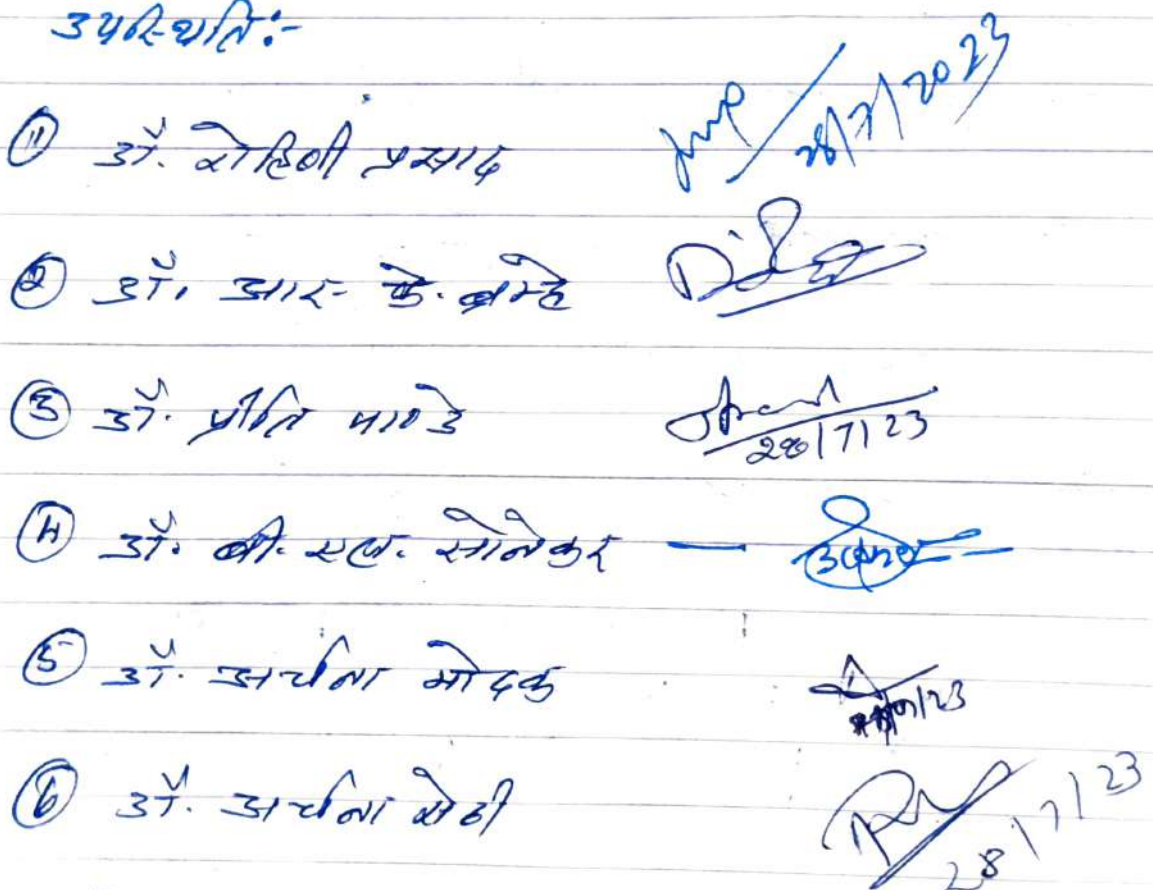 उपस्थिति:-
① डॉ. रोहिणी प्रसाद 28/7/2023
② डॉ. आर. के. ब्रम्हे
③ डॉ. प्रीति पाण्डे 28/7/23
④ डॉ. बी. एल. सोनेकर
⑤ डॉ. अर्चना मोदक
⑥ डॉ. अर्चना सेठी 28/7/23